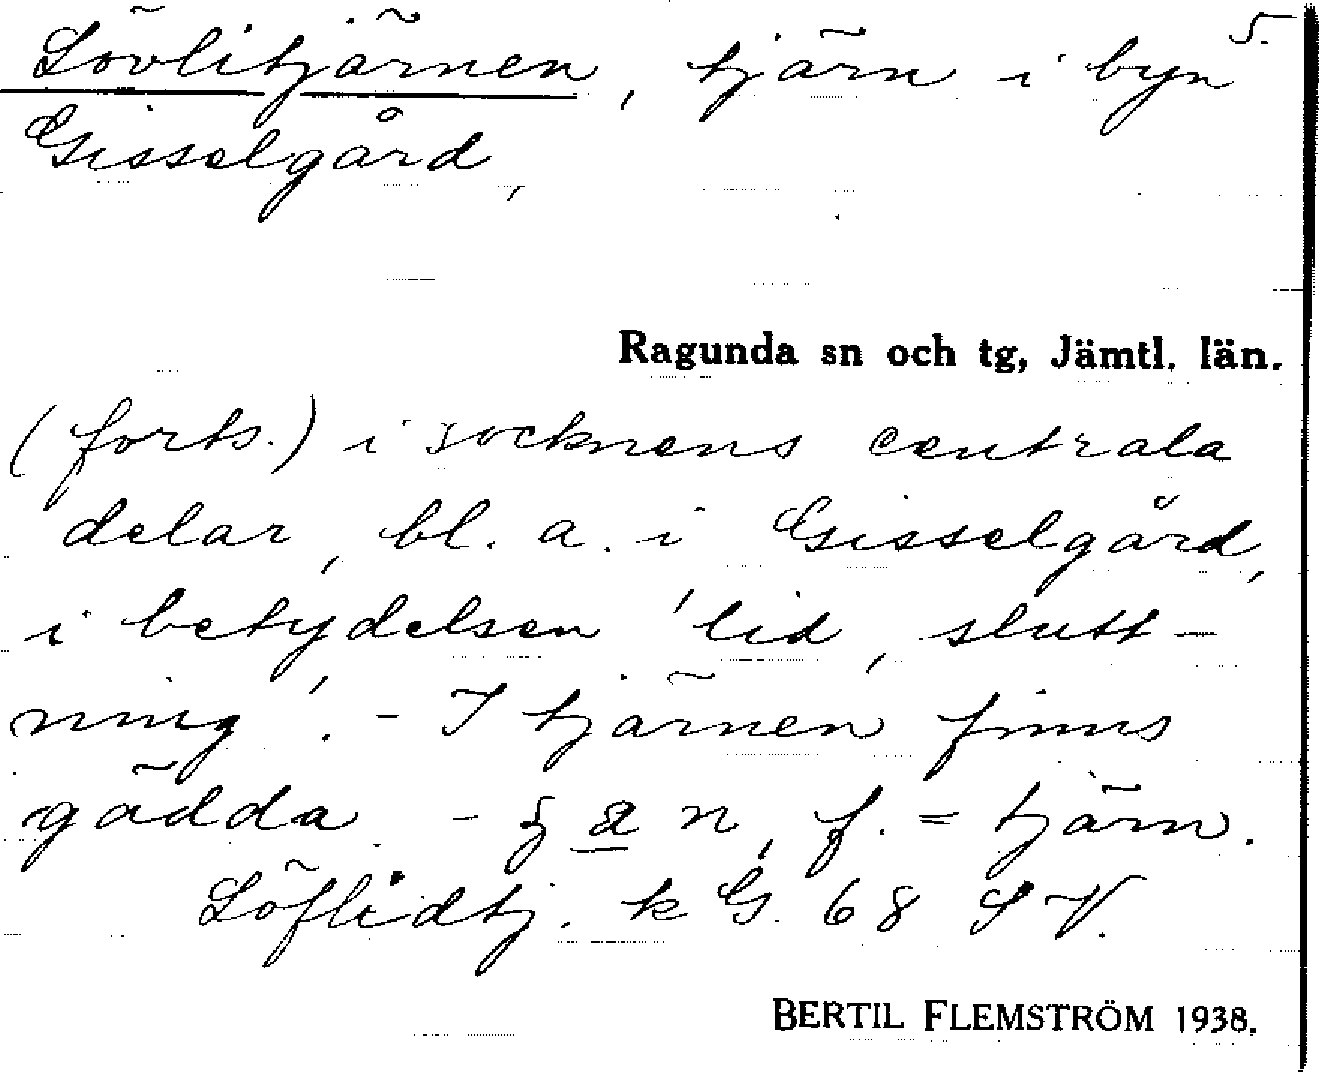 5.
Lövlitjärnen, tjärn i byn
Gisselgård,
Ragunda sn och tg, Jämtl. län.
(forts.) i socknens centrala
delar, bl. a. i Gisselgård,
i betydelsen 'lid, slutt-
ning'. - I tjärnen finns
gädda - n, f. = tjärn.
Löflidtj. k G. 68 S V.
BERTIL FLEMSTRÖM 1938.